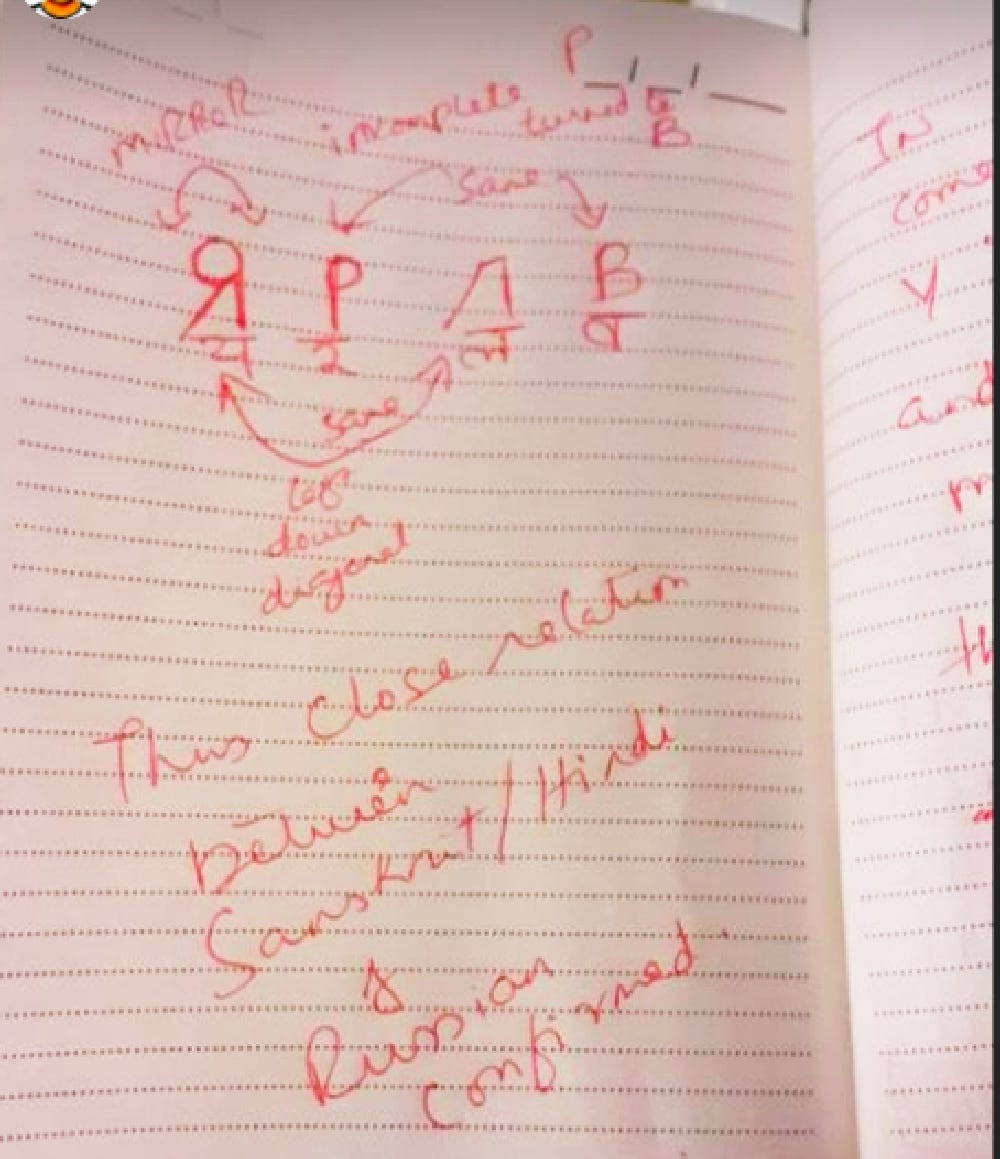 P
MiRROR incomplete turned to
B
same
Я Р Л В
य र ल व
same
left
down
diagonal
Thus close relation
between
Sanskrit/Hindi
&
Russian
confirmed.
In
come
Y
and
m
th